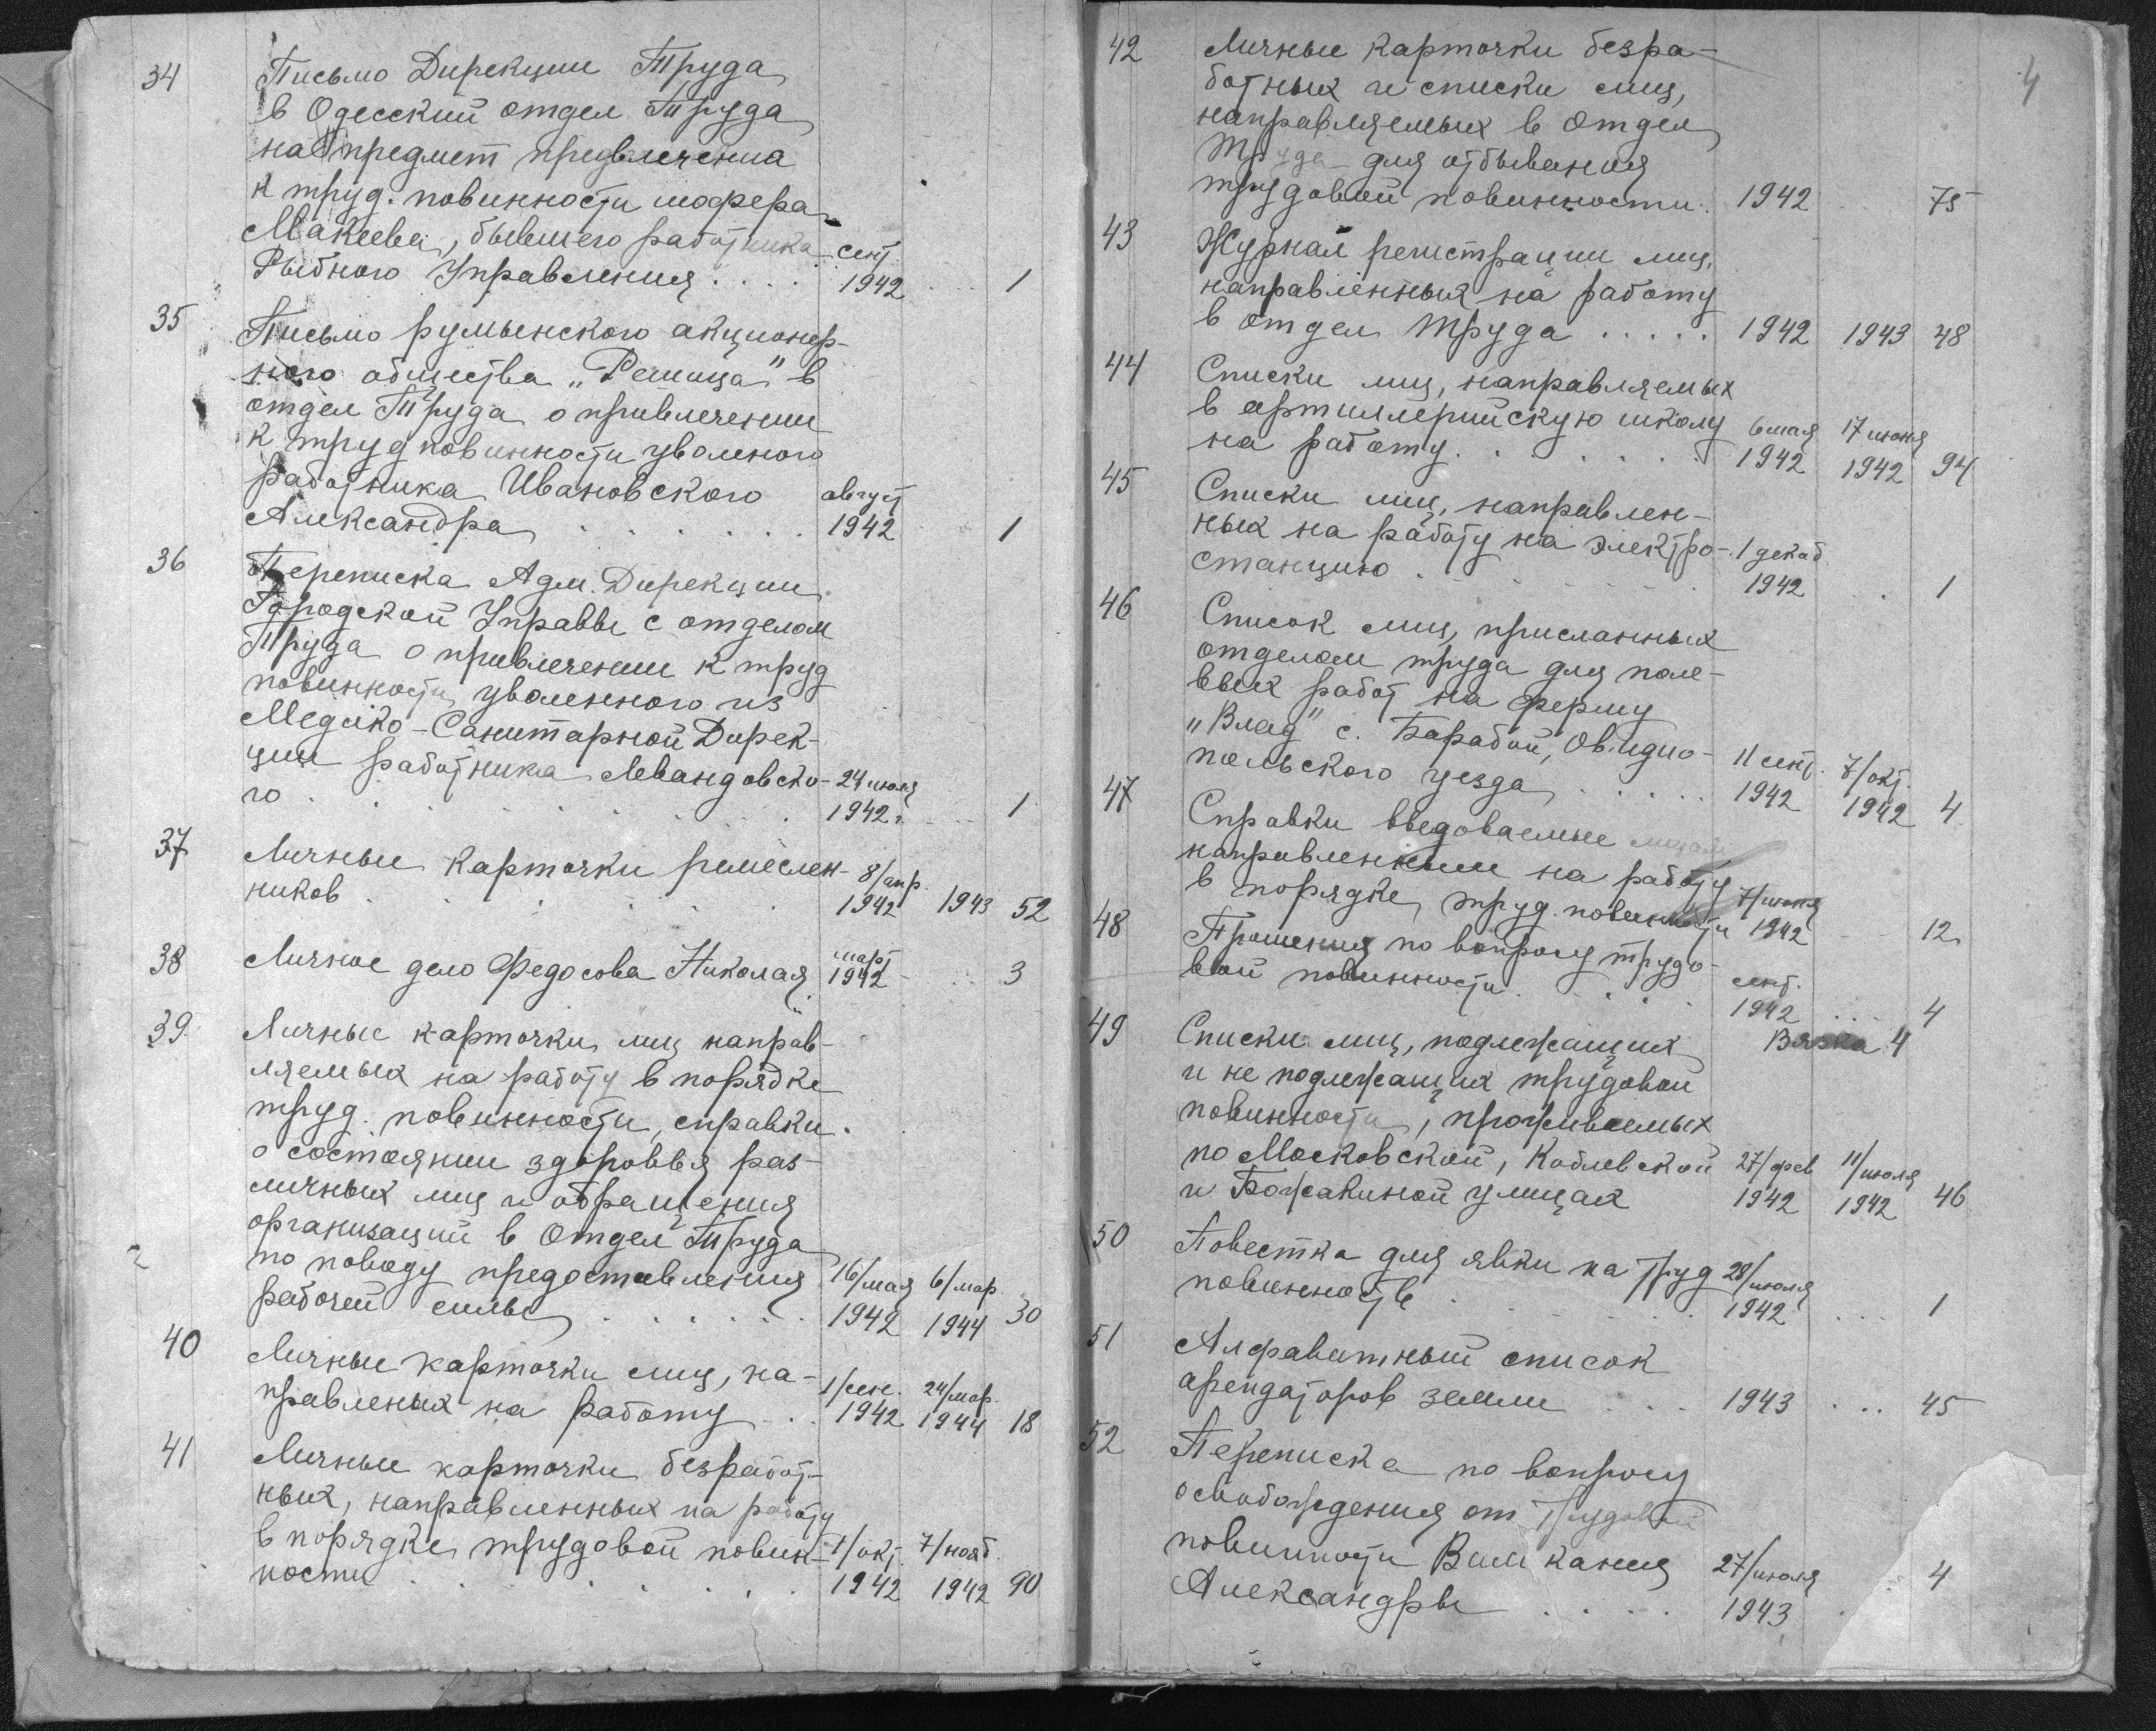 34 Письмо Дирекции Труда
в Одесский отдел Труда
на предмет привлечения
к труд. повинности шофера
Макеева, бывшего работника сент.
Рыбного Управления . . . . 1942 . . . 1
35 Письмо румынского акционер-
ного общества „Решица" в
отдел Труда о привлечении
к труд повинности уволеного
работника Ивановского август
Александра . . . . . . 1942 1
36 Переписка Адм. Дирекции
Городской Управы с отделом
Труда о привлечении к труд
повинности уволенного из
Медико-Санитарной Дирек-
ции работника Левандовско- 24 июля
го . . . . . . . . 1942 г. 1
37 Личные карточки ремеслен- 8/апр.
ников . . . . . . 1942 1943 52
38 Личное дело Федосова Николая март 1942 . . . 3
39 Личные карточки лиц направ-
ляемых на работу в порядке
труд. повинности, справки
о состоянии здоровья раз-
личных лиц и обращения
организаций в Отдел Труда
по поводу предоставления 16/мая 6/мар.
рабочей силы . . . . . . 1942 1944 30
40 Личные карточки лиц, на- 1/сен. 24/мар.
правленых на работу . . 1942 1944 18
41 Личные карточки безработ-
ных, направленных на работу
в порядке трудовой повин- 1/окт. 7/нояб.
ности . . . . . . . . 1942 1942 90
4
42 Личные карточки безра-
ботных и списки лиц,
направляемых в отдел
Труда для отбывания
трудовой повинности. 1942 75
43 Журнал регистрации лиц,
направленных на работу
в отдел Труда . . . . . 1942 1943 48
44 Списки лиц, направляемых
в артиллерийскую школу 6 мая 17 июня
на работу. . . . . . . 1942 1942 94
45 Списки лиц, направлен-
ных на работу на электро- 1 декаб.
станцию . . . . . . . 1942 . 1
46 Список лиц, присланных
отделом труда для поле-
вых работ на ферму
„Влад" с. Барабой, Овидио- 11 сент. 7/окт.
польского уезда . . . . . 1942 1942 4
47 Справки выдоваемые лицам
направленным на работу 7/июня
в порядке труд. повинности 1942 12
48 Прошения по вопросу трудо-
вой повинности . . . . сент. 1942 . . . 4
49 Списки лиц, подлежащих Вязка 4
и не подлежащих трудовой
повинности, проживаемых
по Московской, Коблевской 27/фев 11/июля
и Божакиной улицах 1942 1942 46
50 Повестка для явки на труд 28/июля
повинность . . . . . . 1942 . . . 1
51 Алфавитный список
арендаторов земли . . . 1943 . . . 45
52 Переписка по вопросу
освобождения от трудовой
повинности 27/июля 4
Александры . . . . 1943